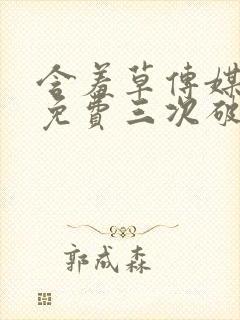 含羞草传媒
免費三次破
郭成森